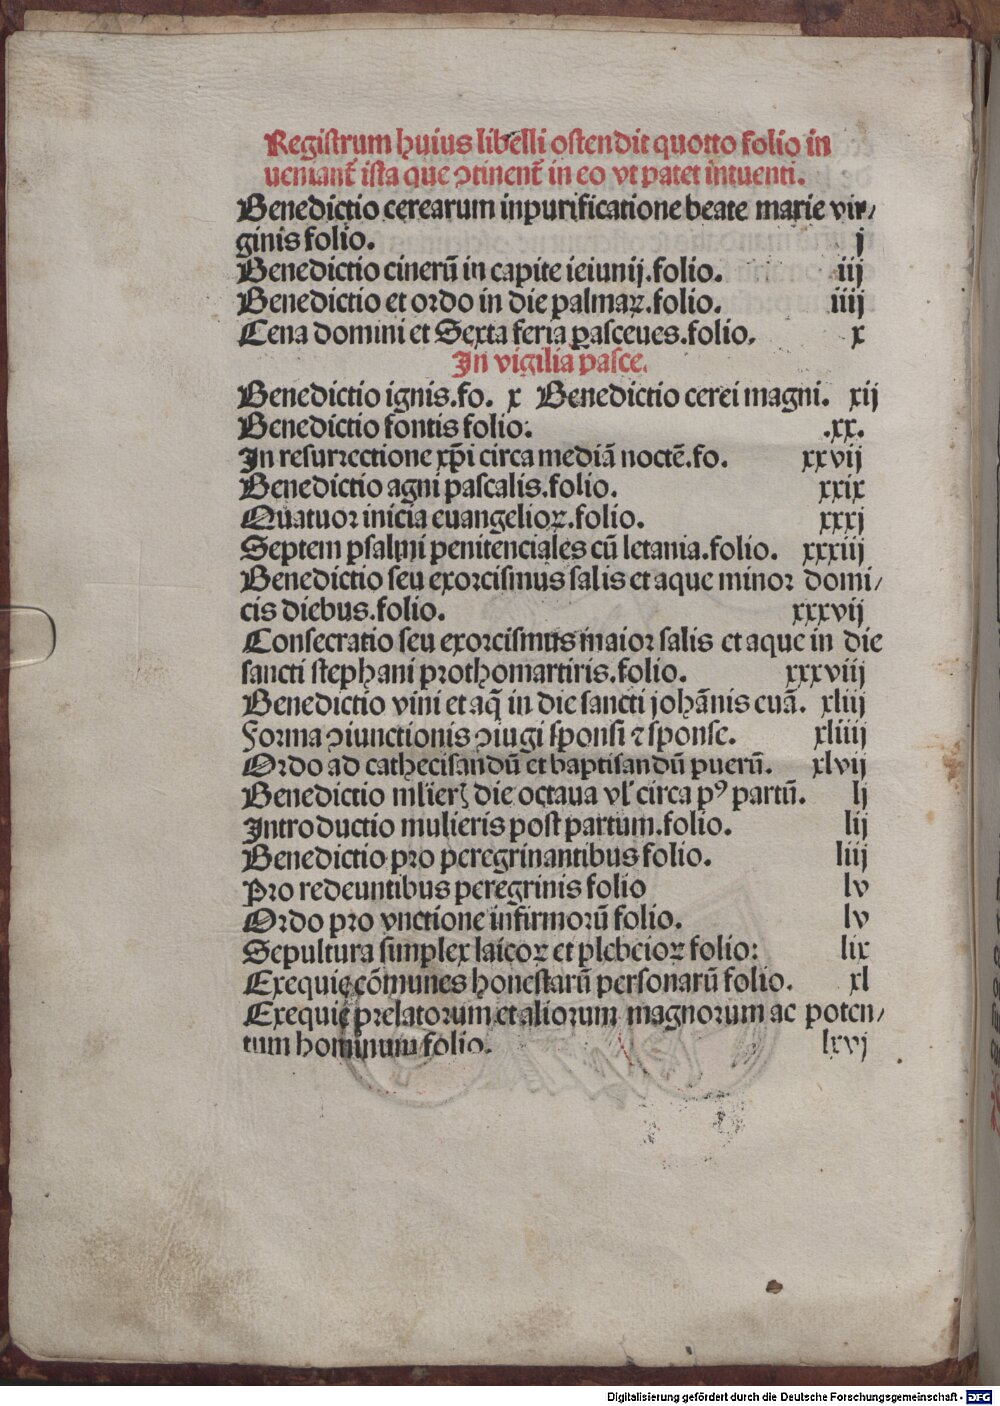 Regiſtrum huius libelli oſtendit quotto folio in
ueniant̄ iſta que ꝯtinent̄ in eo vt patet intuenti.
Benedictio cerearum inpurificatione beate marie vir/
ginis folio. j
Benedictio cinerū in capite ieiunij.folio. iij
Benedictio et ordo in die palmaꝝ.folio. iiij
Cena domini et Sexta feria ꝑaſceues.folio. x
In vigilia paſce.
Benedictio ignis.fo. x Benedictio cerei magni. xij
Benedictio fontis folio. .xx.
In resurrectione xp̄i circa mediā noctē.fo. xxvij
Benedictio agni paſcalis.folio. xxix
Quatuor inicia euangelioꝝ.folio. xxxj
Septem pſalmi penitenciales cū letania.folio. xxxiij
Benedictio ſeu exorciſmus ſalis et aque minor domi/
cis diebus.folio. xxxvij
Conſecratio ſeu exorciſmus maior ſalis et aque in die
ſancti ſtephani prothomartiris.folio. xxxviij
Benedictio vini et aq̄ in die ſancti johānis euā. xliij
Forma ꝯiunctionis ꝯiugi ſponſi ⁊ ſponſe. xliiij
Ordo ad catheciſandū et baptiſandū puerū. xlvij
Benedictio mlierꝫ die octaua vl̓ circa pꝰ partū. lj
Introductio mulieris poſt partum.folio. lij
Benedictio pro peregrinantibus folio. liij
Pro redeuntibus peregrinis folio lv
Ordo pro vnctione infirmorū folio. lv
Sepultura ſimplex laicoꝝ et plebeioꝝ folio: lix
Exequię cōmunes honeſtarū perſonarū folio. xl
Exequię prelatorum et aliorum magnorum ac poten/
tum hominum folio. lxvj
Digitalisierung gefördert durch die Deutsche Forschungsgemeinschaft - DFG